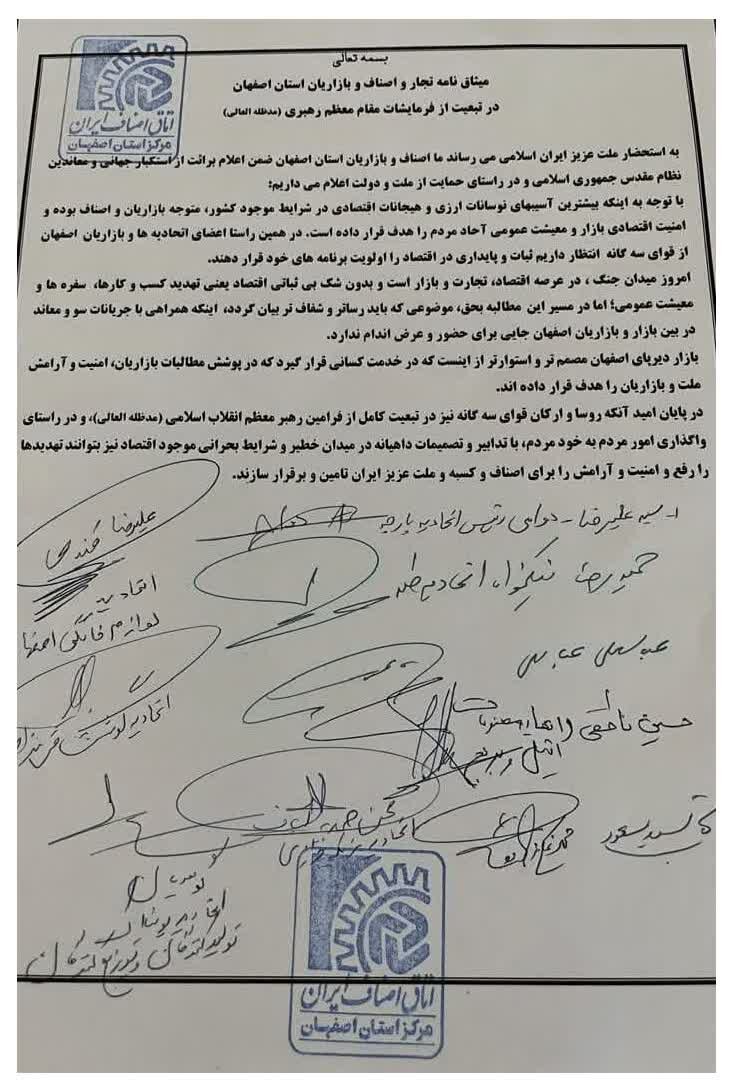 بسمه تعالی
میثاق نامه تجار و اصناف و بازاریان استان اصفهان
در تبعیت از فرمایشات مقام معظم رهبری (مدظله العالی)
اتاق اصناف ایران
مرکز استان اصفهان
به استحضار ملت عزیز ایران اسلامی می رساند ما اصناف و بازاریان استان اصفهان ضمن اعلام برائت از استکبار جهانی و معاندین
نظام مقدس جمهوری اسلامی و در راستای حمایت از ملت و دولت اعلام می داریم:
با توجه به اینکه بیشترین آسیبهای نوسانات ارزی و هیجانات اقتصادی در شرایط موجود کشور، متوجه بازاریان و اصناف بوده و
امنیت اقتصادی بازار و معیشت عمومی آحاد مردم را هدف قرار داده است. در همین راستا اعضای اتحادیه ها و بازاریان اصفهان
از قوای سه گانه انتظار داریم ثبات و پایداری در اقتصاد را اولویت برنامه های خود قرار دهند.
امروز میدان جنگ ، در عرصه اقتصاد، تجارت و بازار است و بدون شک بی ثباتی اقتصاد یعنی تهدید کسب و کارها، سفره ها و
معیشت عمومی؛ اما در مسیر این مطالبه بحق، موضوعی که باید رساتر و شفاف تر بیان گردد، اینکه همراهی با جریانات سو و معاند
در بین بازار و بازاریان اصفهان جایی برای حضور و عرض اندام ندارد.
بازار دیرپای اصفهان مصمم تر و استوارتر از اینست که در خدمت کسانی قرار گیرد که در پوشش مطالبات بازاریان، امنیت و آرامش
ملت و بازاریان را هدف قرار داده اند.
در پایان امید آنکه روسا و ارکان قوای سه گانه نیز در تبعیت کامل از فرامین رهبر معظم انقلاب اسلامی (مدظله العالی)، و در راستای
واگذاری امور مردم به خود مردم، با تدابیر و تصمیمات داهیانه در میدان خطیر و شرایط بحرانی موجود اقتصاد نیز بتوانند تهدیدها
را رفع و امنیت و آرامش را برای اصناف و کسبه و ملت عزیز ایران تامین و برقرار سازند.
سید علیرضا دوامی رئیس اتحادیه پارچه
علیرضا
اتحادیه
لوازم خانگی
حمیدرضا اتحادیه
عباسعلی عباسی
اتحادیه
حسین
محسن
اتحادیه
سید مسعود
اتحادیه پوشاک
تولیدکنندگان و توزیع کنندگان
اتاق اصناف ایران
مرکز استان اصفهان